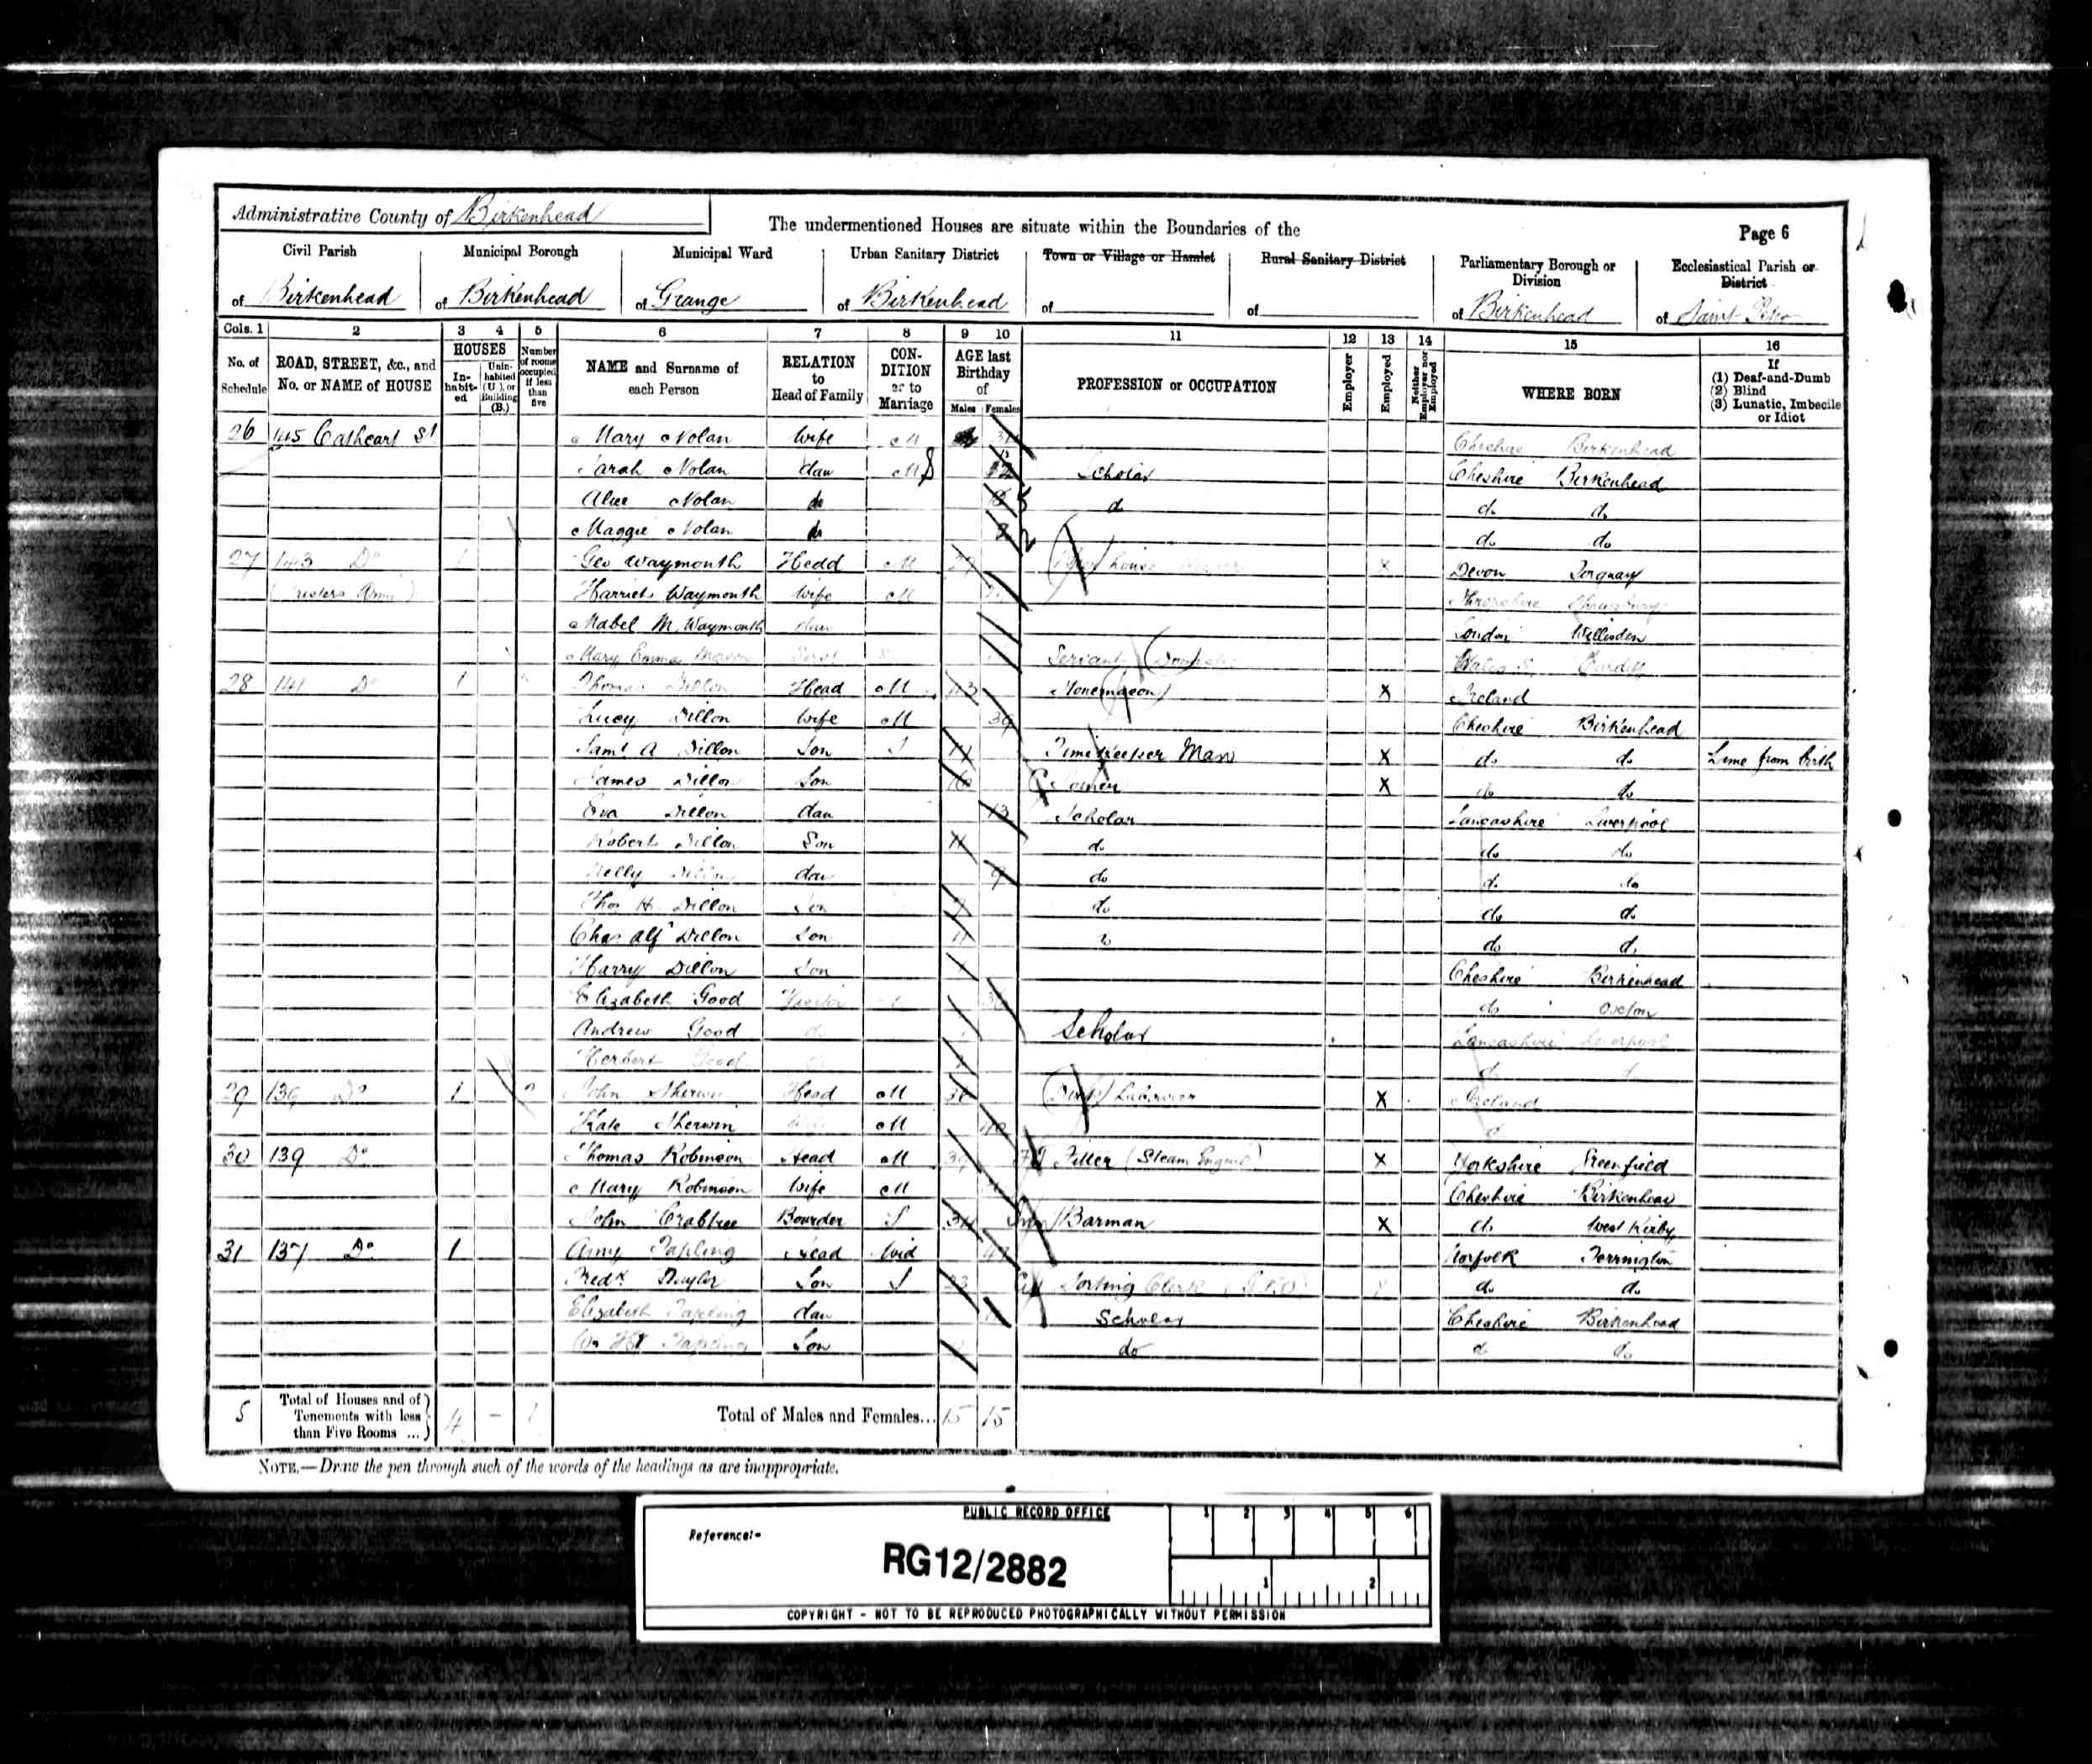 Administrative County of Birkenhead
The undermentioned Houses are situate within the Boundaries of the
Page 6
Civil Parish of Birkenhead
Municipal Borough of Birkenhead
Municipal Ward of Grange
Urban Sanitary District of Birkenhead
Town or Village or Hamlet of
Rural Sanitary District of
Parliamentary Borough or Division of Birkenhead
Ecclesiastical Parish or District of Saint
Cols. 1 2 3 4 5 6 7 8 9 10 11 12 13 14 15 16
No. of Schedule
ROAD, STREET, &c., and No. or NAME of HOUSE
HOUSES
In-habit-ed
Unin-habited (U.), or Building (B.)
Number of rooms occupied if less than five
NAME and Surname of each Person
RELATION to Head of Family
CON-DITION as to Marriage
AGE last Birthday of
Males Females
PROFESSION or OCCUPATION
Employer
Employed
Neither Employer nor Employed
WHERE BORN
If
(1) Deaf-and-Dumb
(2) Blind
(3) Lunatic, Imbecile or Idiot
26 145 Cathcart St Mary Nolan Wife M Cheshire Birkenhead
Sarah Nolan dau S Scholar Cheshire Birkenhead
Alice Nolan do do do do
Maggie Nolan do do do
27 143 Do 1 Geo Waymonth Hedd M house Devon Torquay
Arms Harriet Waymonth Wife M
Mabel M. Waymonth dau London Willesden
Mary Emma Servant Cardiff
28 141 Do 1 Thomas Dillon Head M 43 Stonemason X Ireland
Lucy Dillon Wife M 39 Cheshire Birkenhead
Saml A Dillon Son S Timekeeper Man X do do Lame from birth
James Dillon Son 16 Joiner X do do
Eva Dillon dau 13 Scholar Lancashire Liverpool
Robert Dillon Son 11 do do do
Nelly Dillon dau 9 do do do
Thos H. Dillon Son do do do
Chas Alf Dillon Son do do
Harry Dillon Son Cheshire Birkenhead
Elizabeth Good Visitor do Oxton
Andrew Good do Scholar Lancashire Liverpool
Herbert Good do do
29 139 Do 1 2 John Sherwin Head M Labourer X Ireland
Kate Sherwin M 40
30 139 Do Thomas Robinson Head M Fitter (Steam Engine) X Yorkshire Greenfield
Mary Robinson Wife M Cheshire Birkenhead
John Crabtree Bourder S 34 Barman X do West Kirby
31 137 Do 1 Amy Tapling Head Wid Norfolk Terrington
Fredk Son S 23 Sorting Clerk (G.P.O) X do do
Elizabeth Tapling dau Scholar Cheshire Birkenhead
Wm Tapling Son do do do
5 Total of Houses and of Tenements with less than Five Rooms ... 4 – 1 Total of Males and Females... 15 15
NOTE.—Draw the pen through such of the words of the headings as are inappropriate.
PUBLIC RECORD OFFICE
Reference:-
RG12/2882
1 2 3 4 5 6
1 2
COPYRIGHT - NOT TO BE REPRODUCED PHOTOGRAPHICALLY WITHOUT PERMISSION